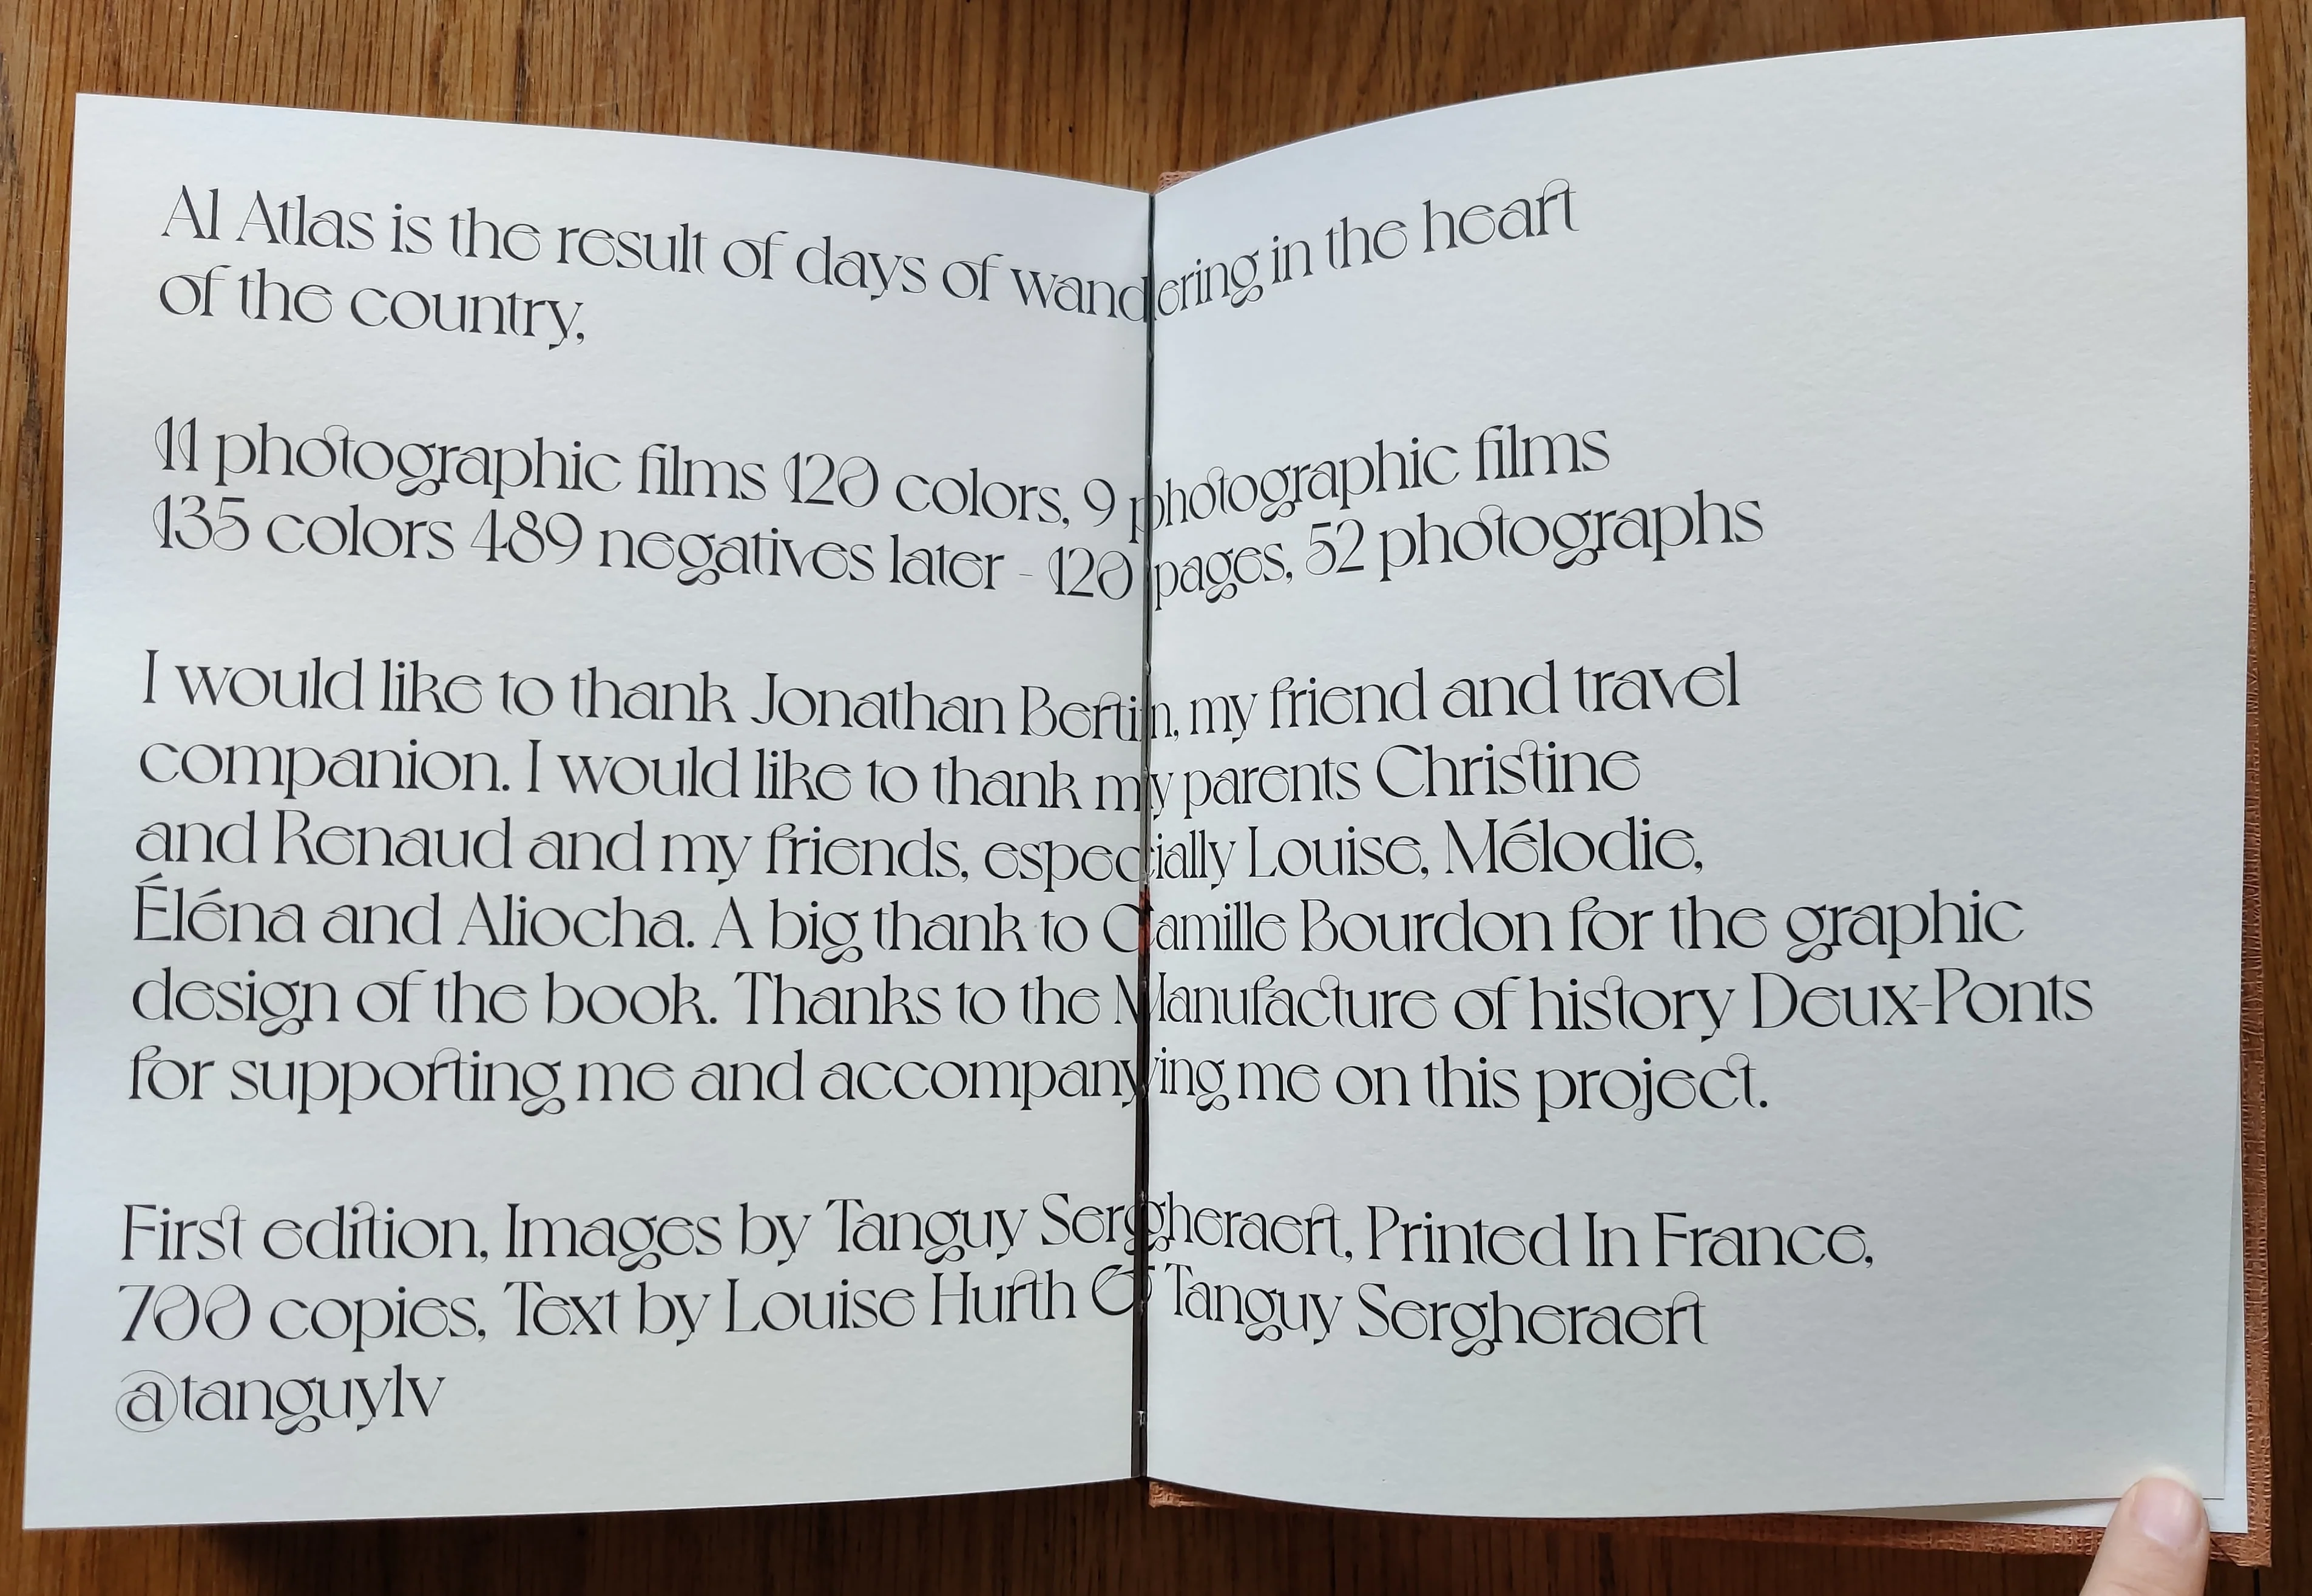 Al Atlas is the result of days of wandering in the heart
of the country,
11 photographic films 120 colors, 9 photographic films
135 colors 489 negatives later - 120 pages, 52 photographs
I would like to thank Jonathan Bertin, my friend and travel
companion. I would like to thank my parents Christine
and Renaud and my friends, especially Louise, Mélodie,
Éléna and Aliocha. A big thank to Camille Bourdon for the graphic
design of the book. Thanks to the Manufacture of history Deux-Ponts
for supporting me and accompanying me on this project.
First edition, Images by Tanguy Sergheraert, Printed In France,
700 copies, Text by Louise Hurth & Tanguy Sergheraert
@tanguylv